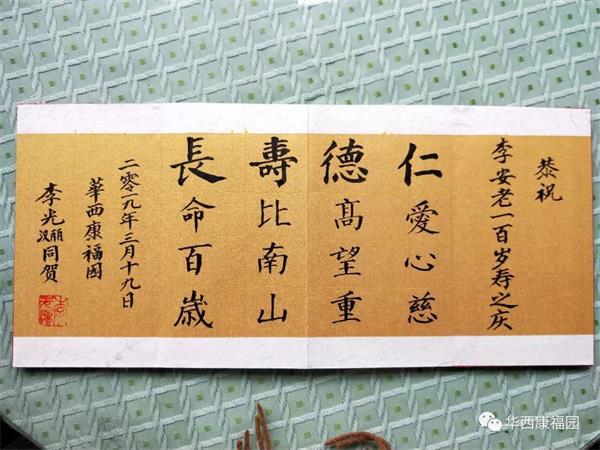 恭祝
李安老一百岁寿之庆
仁愛心慈
德高望重
壽比南山
長命百歳
二零一九年三月十九日
華西康福园
李光
丽
同贺
华西康福园